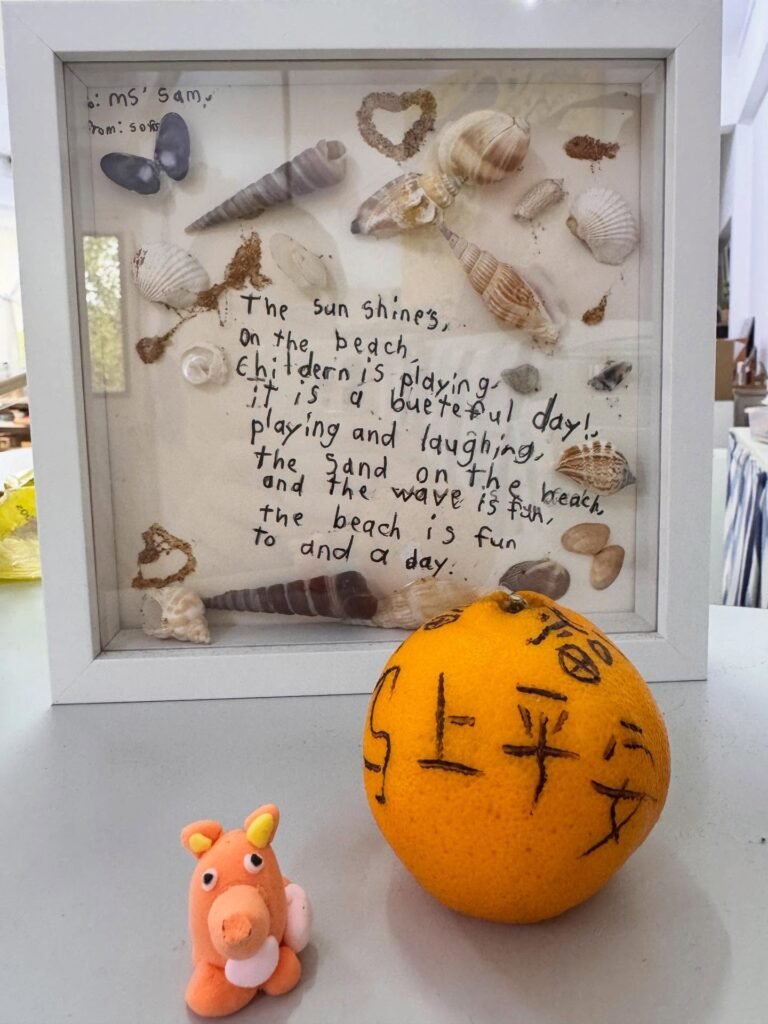 ms' Sam,
The sun shine's,
on the beach,
Childern is playing,
it is a bueteful day!,
playing and laughing,
the sand on the beach,
and the wave is fun,
the beach is fun
to and a day.
上平安